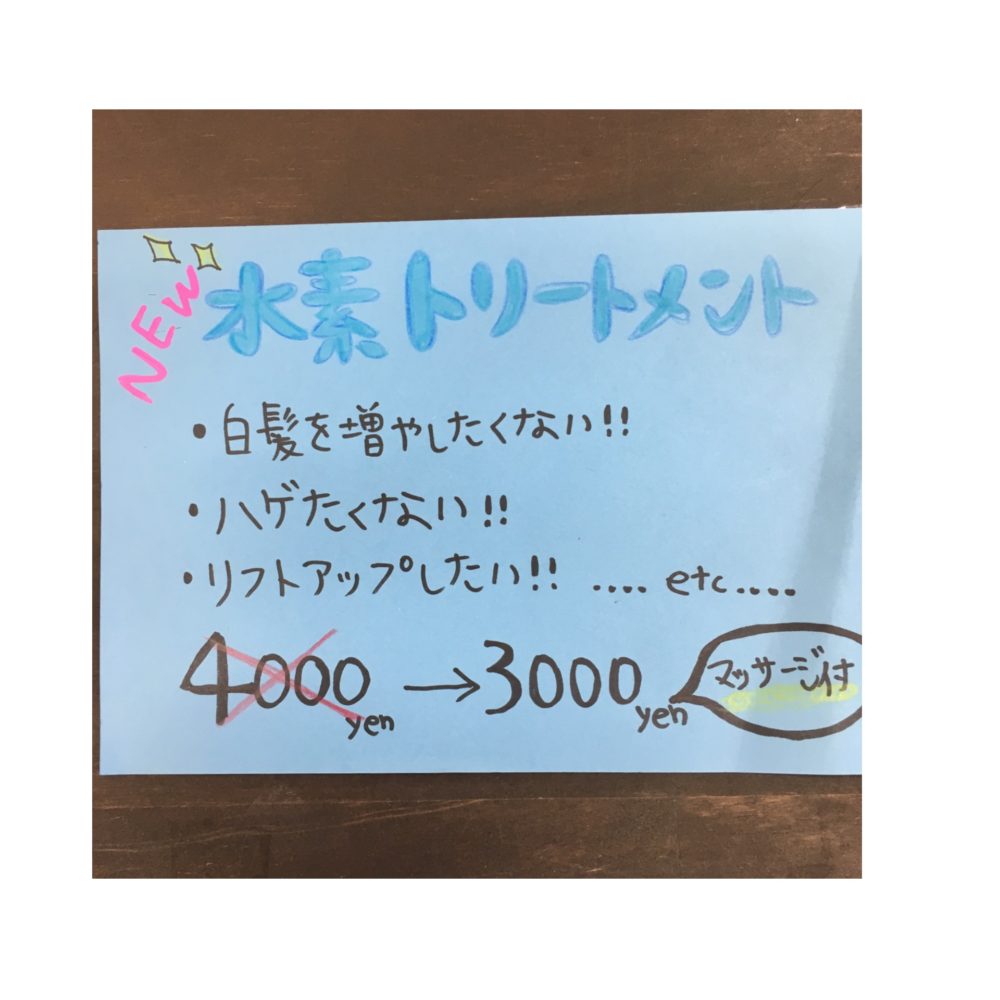 NEW
水素トリートメント
・白髪を増やしたくない!!
・ハゲたくない!!
・リフトアップしたい!! .... etc....
4000yen → 3000yen マッサージ付